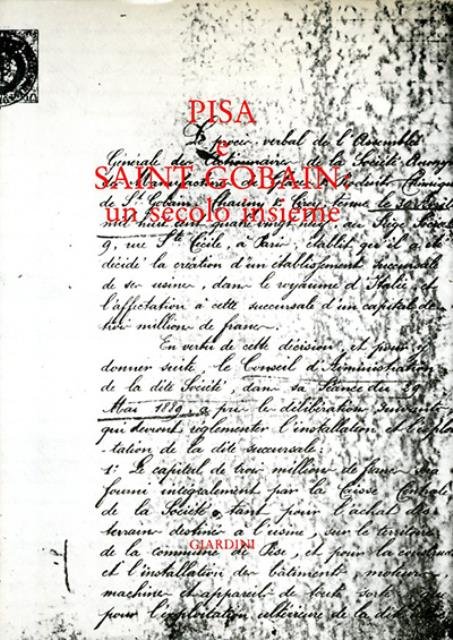 PISA
e
SAINT GOBAIN:
un secolo insieme
Le procès verbal de l'Assemblée
Générale des Actionnaires de la Société Anonyme
des Manufactures de glaces & Produits Chimiques
de St Gobain, Chauny & Cirey, tenue le 30 Avril
mil huit cent quatre vingt neuf, au Siège Social
9, rue Ste Cécile, à Paris, établit qu'il a été
décidé la création d'un établissement succursale
de ses usines, dans le royaume d'Italie et
l'affectation à cette succursale d'un capital de
trois millions de francs.
En vertu de cette décision, et pour y
donner suite le Conseil d'Administration
de la dite Société, dans sa Séance du 29
Mai 1889 a pris les délibérations suivantes
qui devront règlementer l'installation et l'exploi
-tation de la dite succursale:
1º Le capital de trois millions de francs sera
fourni intégralement par la Caisse Centrale
de la Société, tant pour l'achat des
terrains destinés a l'usine, sur le territoire
de la commune de Pise, et pour la construc
et l'installation des bâtiments, moteurs,
machines et appareils de toute sorte, que
pour l'exploitation ultérieure de la dite
GIARDINI